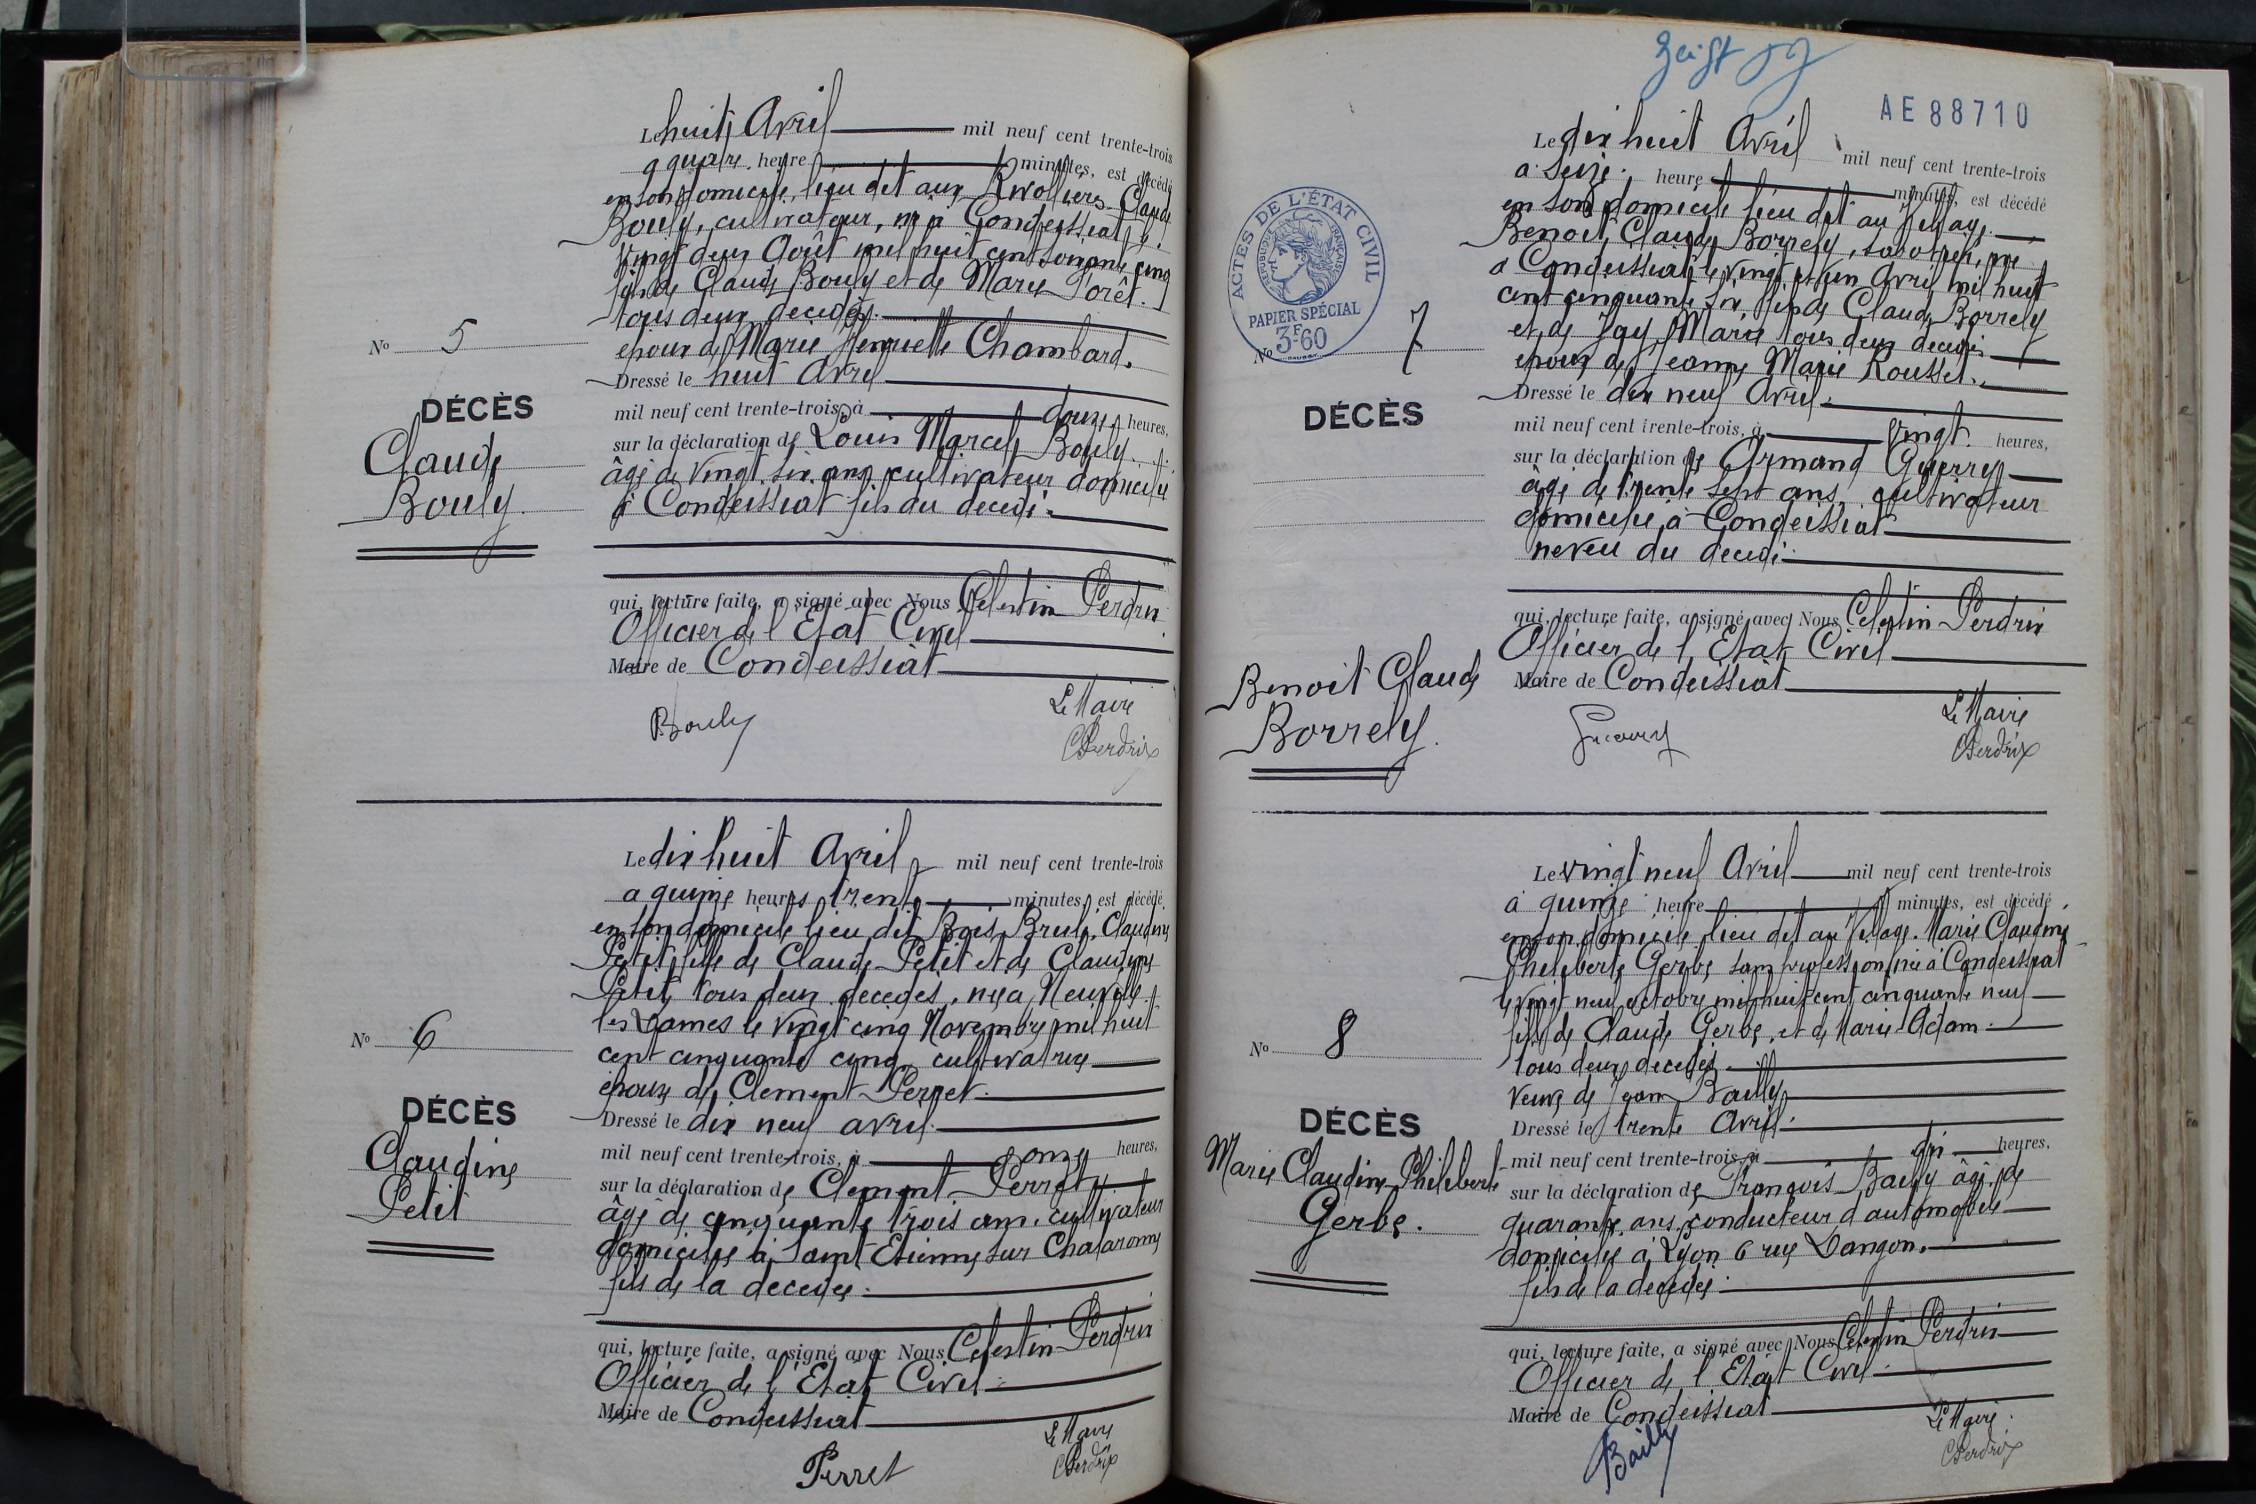 Le huit Avril mil neuf cent trente-trois
à quatre heure minutes, est décédé
en son domicile, lieu dit aux Rivollières Claude
Bouly, cultivateur, né à Condeissiat le
vingt deux Août mil huit cent soixante cinq
fils de Claude Bouly et de Marie Porêt.
tous deux décédés.
époux de Marie Henriette Chambard.
Dressé le huit Avril
mil neuf cent trente-trois, à douze heures,
sur la déclaration de Louis Marcel Bouly.
âgé de vingt six ans, cultivateur domicilié
à Condeissiat fils du décédé.
qui, lecture faite, a signé avec Nous Célestin Perdrix
Officier de l'Etat Civil
Maire de Condeissiat
Bouly
Le Maire
CPerdrix
No 5
DÉCÈS
Claude
Bouly.
Le dix huit Avril mil neuf cent trente-trois
à quinze heures trente minutes, est décédé
en son domicile lieu dit Bois Brulé, Claudine
Petit fille de Claude Petit et de Claudine
Petit, tous deux décédés, née à Neuville
les Dames le vingt cinq Novembre mil huit
cent cinquante cinq, cultivatrice
épouse de Clement Perret.
Dressé le dix neuf avril.
mil neuf cent trente-trois, à onze heures,
sur la déclaration de Clement Perret
âgé de cinquante trois ans, cultivateur
domicilié à Saint Etienne sur Chalaronne
fils de la décédée.
qui, lecture faite, a signé avec Nous Célestin Perdrix
Officier de l'Etat Civil
Maire de Condeissiat
Perret
Le Maire
CPerdrix
No 6
DÉCÈS
Claudine
Petit
AE 88710
Le dix huit Avril mil neuf cent trente-trois
à Seize heure minutes, est décédé
en son domicile lieu dit au Village.
Benoit Claude Borrely, sabotier, né
à Condeissiat le vingt et un Avril mil huit
cent cinquante six fils de Claude Borrely
et de Jay Marie tous deux décédés
époux de Jeanne Marie Rousset.
Dressé le dix neuf Avril.
mil neuf cent trente-trois, à vingt heures,
sur la déclaration de Armand Guerry
âgé de trente sept ans, cultivateur
domicilié à Condeissiat
neveu du décédé.
qui, lecture faite, a signé avec Nous Célestin Perdrix
Officier de l'Etat Civil
Maire de Condeissiat
Le Maire
CPerdrix
ACTES DE L'ÉTAT CIVIL
RÉPUBLIQUE FRANÇAISE
PAPIER SPÉCIAL
3F60
No 7
DÉCÈS
Benoit Claude
Borrely.
Le vingt neuf Avril mil neuf cent trente-trois
à quinze heure minutes, est décédé
en son domicile, lieu dit au Village. Marie Claudine
Philiberte Gerbe sans profession, née à Condeissiat
le vingt neuf octobre mil huit cent cinquante neuf
fille de Claude Gerbe, et de Marie Adam.
tous deux décédés.
veuve de Jean Bailly
Dressé le trente Avril.
mil neuf cent trente-trois, à dix heures,
sur la déclaration de François Bailly âgé de
quarante ans, conducteur d'automobile
domicilié à Lyon 6 rue Dangon.
fils de la décédée.
qui, lecture faite, a signé avec Nous Célestin Perdrix
Officier de l'Etat Civil
Maire de Condeissiat
Bailly
Le Maire
CPerdrix
No 8
DÉCÈS
Marie Claudine Philiberte
Gerbe.